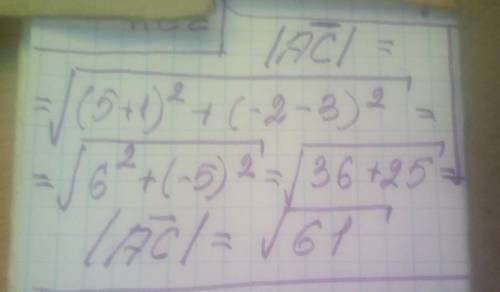 |AC̅| =
= √(5+1)² + (-2-3)² =
= √6² + (-5)² = √36 + 25 =
|AC̅| = √61